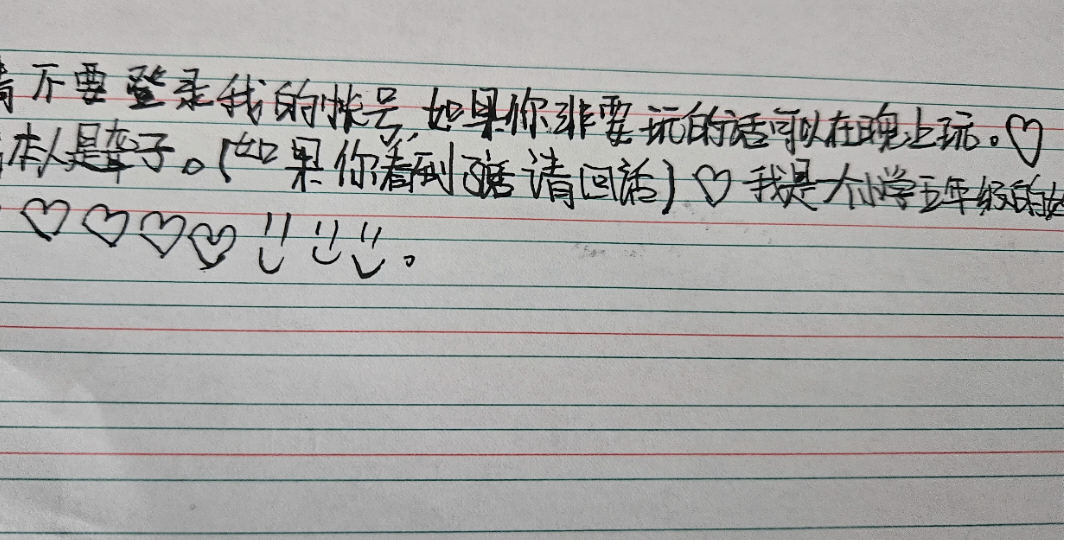 请不要登录我的帐号 如果你非要玩的话可以在晚上玩。♡
本人是李子。(如果你看到了话请回话)♡ 我是一个小学五年级的
♡♡♡♡